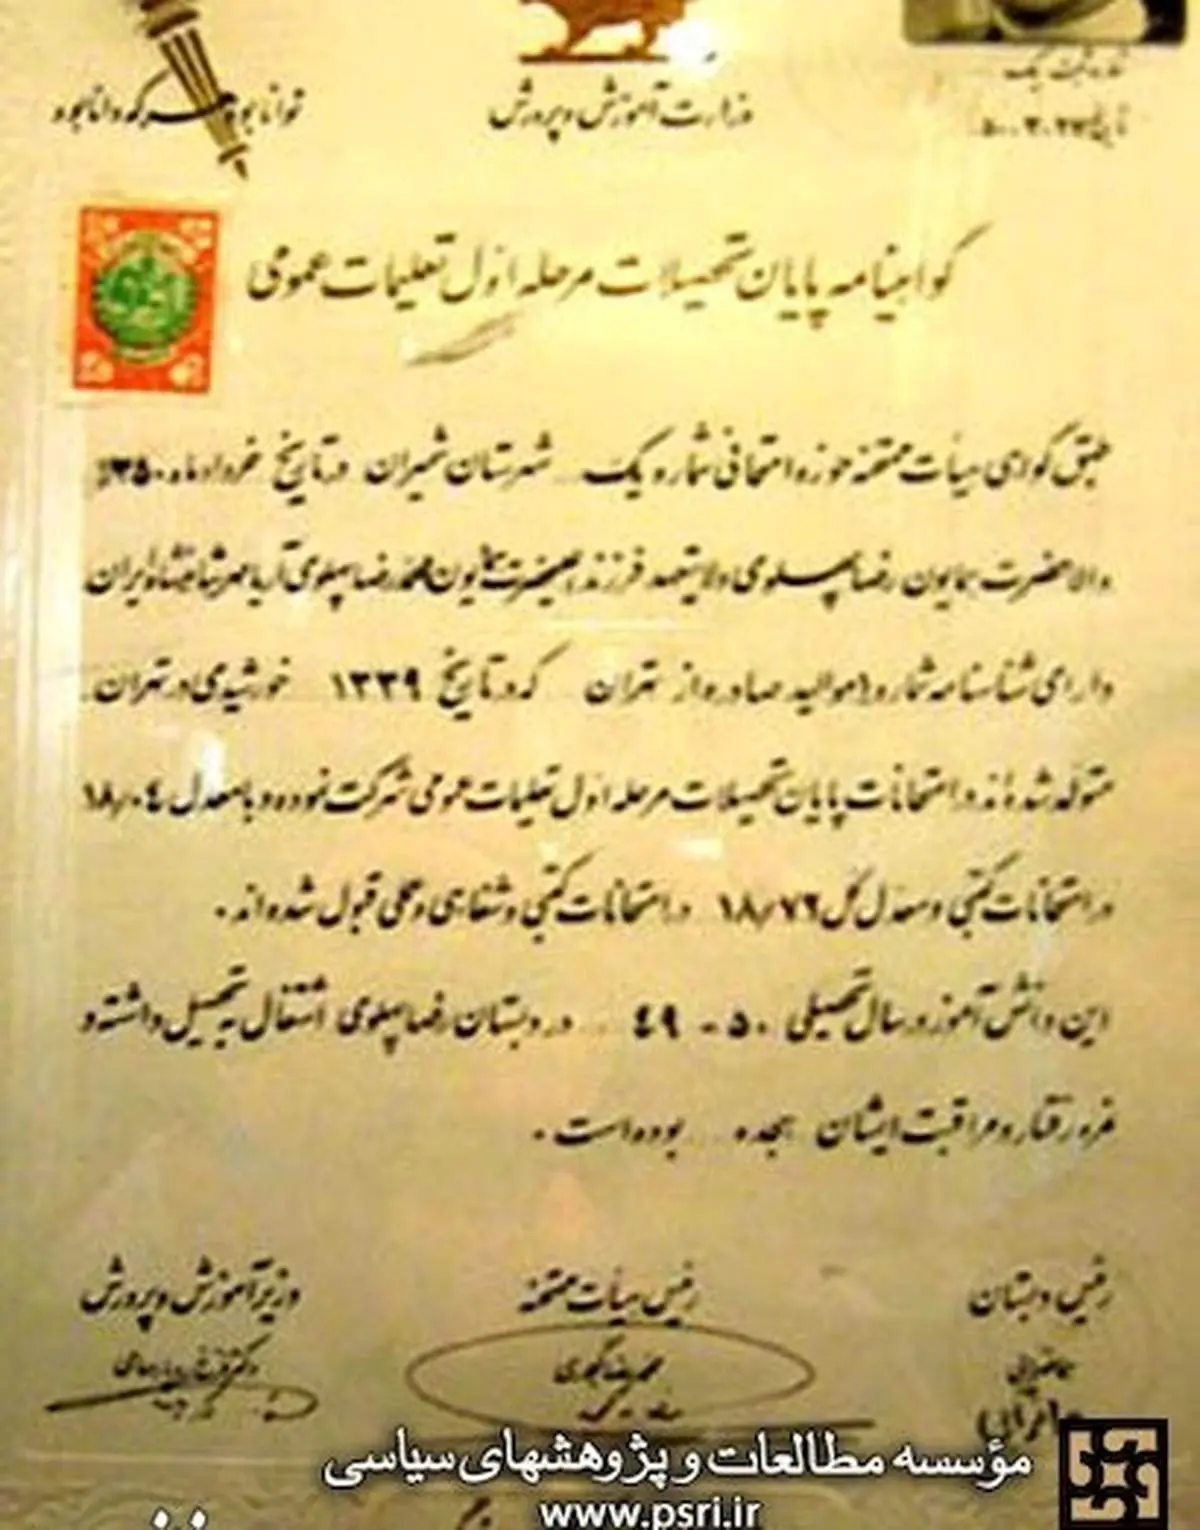 شماره ثبت یک
تاریخ ۵۰.۳.۲۳
وزارت آموزش و پرورش
توانا بود هر که دانا بود
گواهینامه پایان تحصیلات مرحله اول تعلیمات عمومی
طبق گواهی هیأت ممتحنه حوزه امتحانی شماره یک شهرستان شمیران در تاریخ خرداد ماه ۱۳۵۰
والاحضرت همایون رضا پهلوی ولایتعهد فرزند اعلیحضرت همایون محمدرضا پهلوی آریامهر شاهنشاه ایران
دارای شناسنامه شماره ۱ موالید صادره از تهران که در تاریخ ۱۳۳۹ خورشیدی در تهران
متولد شده‌اند در امتحانات پایان تحصیلات مرحله اول تعلیمات عمومی شرکت نموده و با معدل ۱۸/۰۴
در امتحانات کتبی و معدل کل ۱۸/۷۶ در امتحانات کتبی و شفاهی و عملی قبول شده‌اند.
این دانش آموز در سال تحصیلی ۵۰ - ۴۹ در دبستان رضا پهلوی اشتغال به تحصیل داشته و
نمره رفتار و مراقبت ایشان هجده بوده است.
رئیس دبستان
رئیس هیأت ممتحنه
وزیر آموزش و پرورش
مؤسسه مطالعات و پژوهشهای سیاسی
www.psri.ir